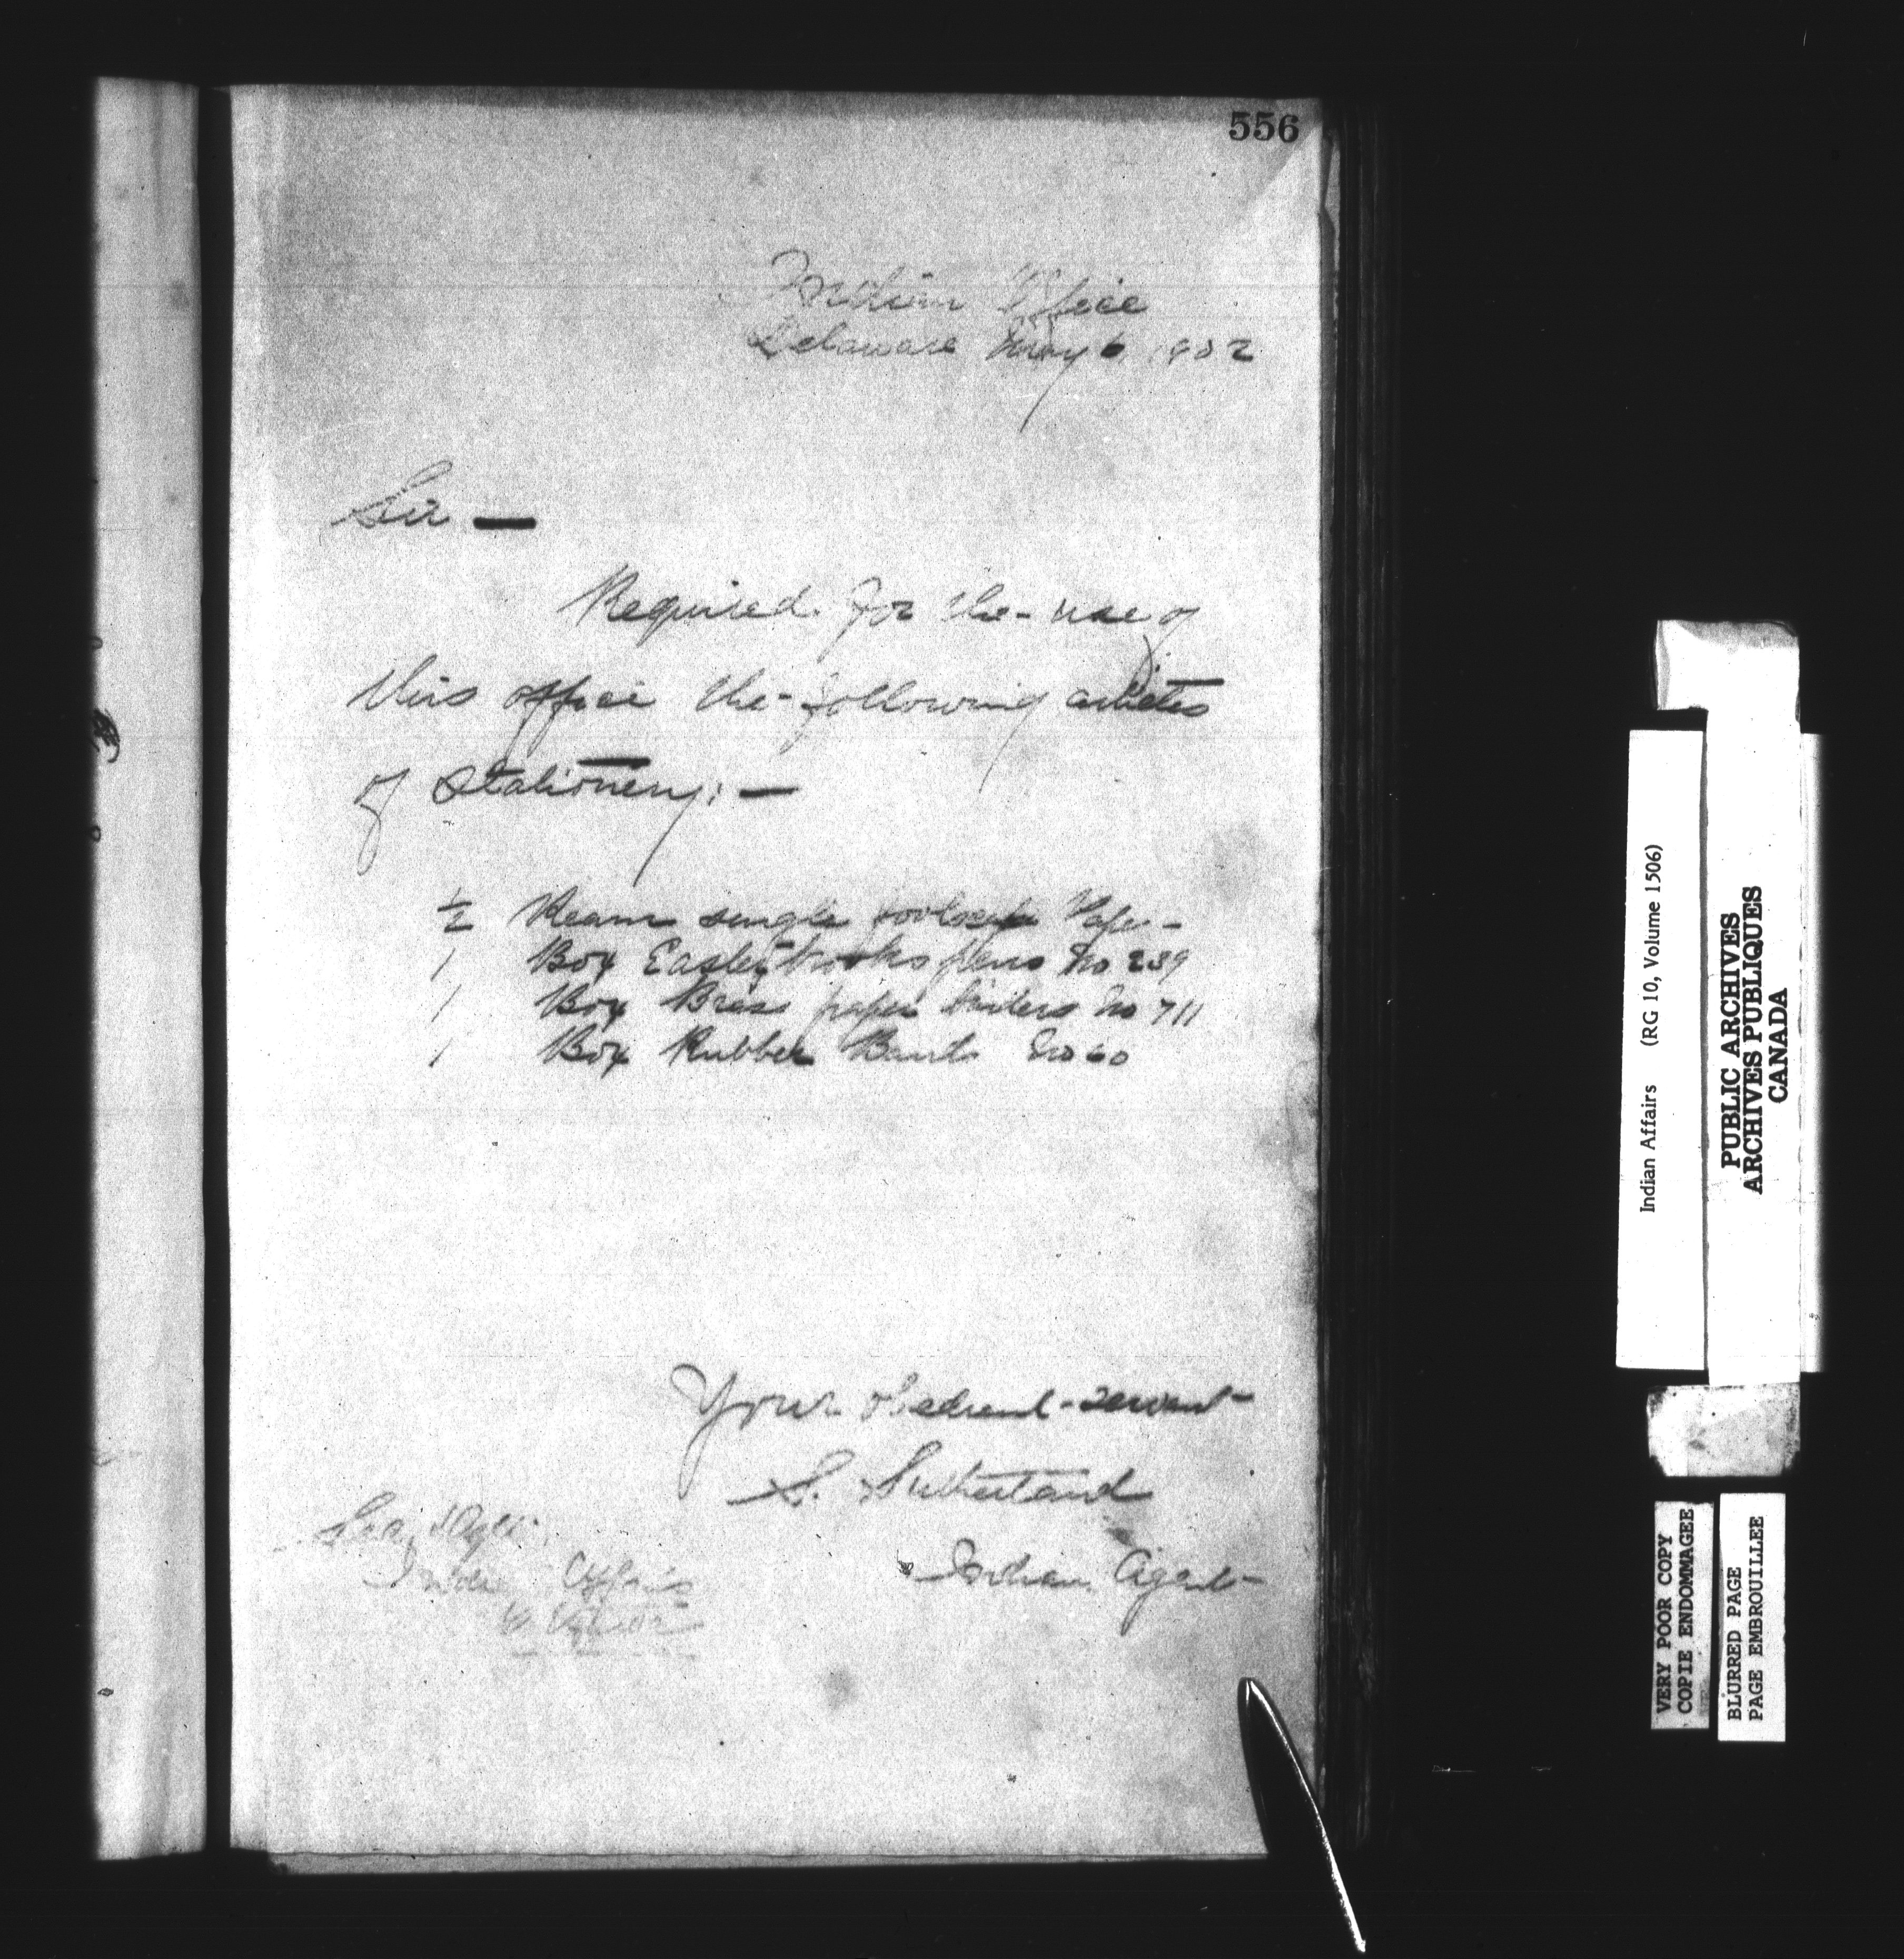 556
Indian Office
Delaware May 6 1902
Sir —
Required for the use of
this office the following articles
of Stationery: —
½ Ream single foolscap Paper
1 Box Easterbrooks pens No 239
1 Box Brass paper binders No 711
1 Box Rubber Bands No 60
Your obedient servant
S. Sutherland
Indian Agent
Indian Affairs
Ottawa
Indian Affairs (RG 10, Volume 1506)
PUBLIC ARCHIVES
ARCHIVES PUBLIQUES
CANADA
VERY POOR COPY
COPIE ENDOMMAGEE
BLURRED PAGE
PAGE EMBROUILLEE